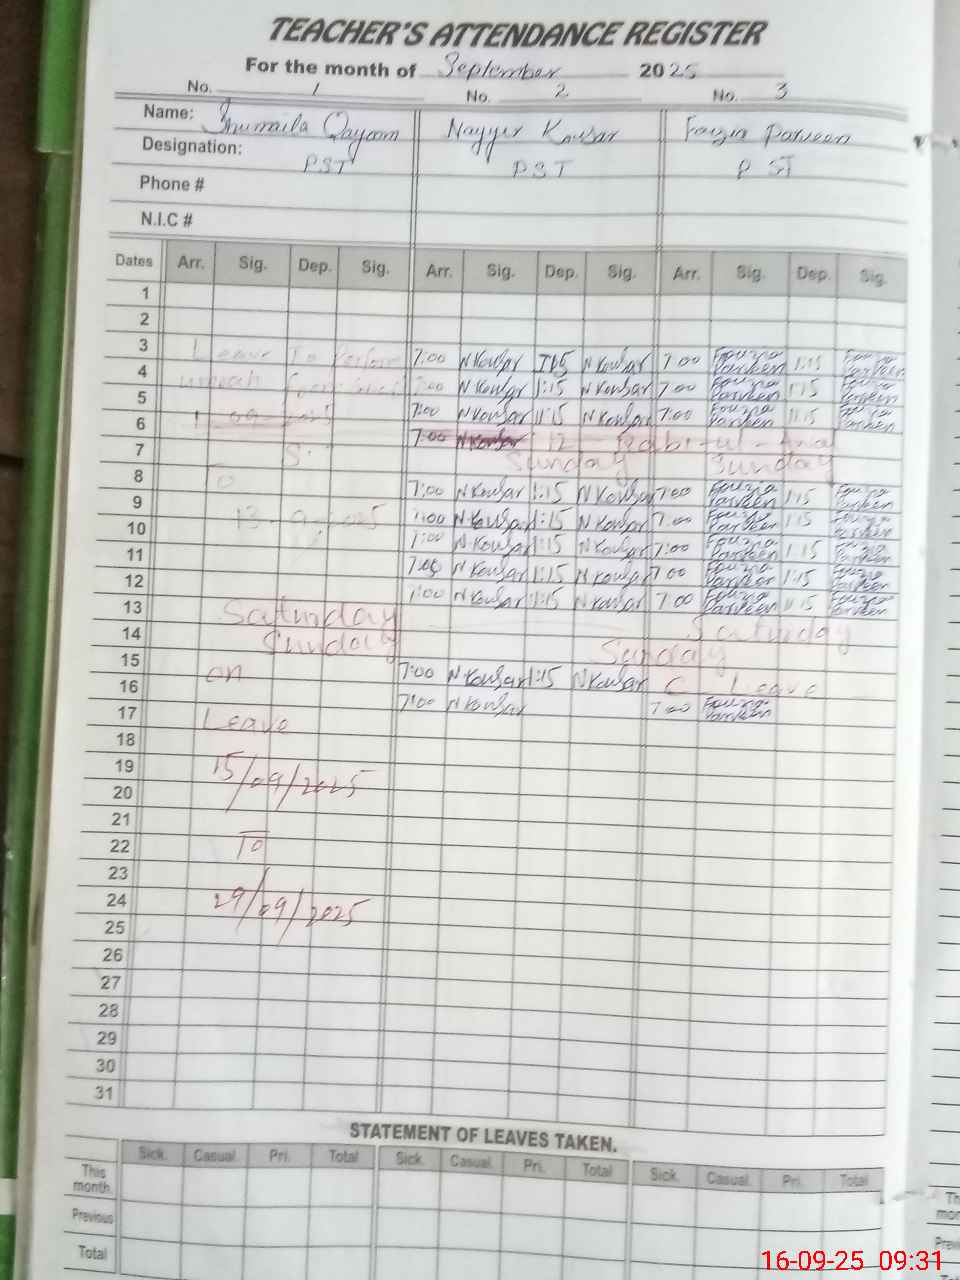 TEACHER'S ATTENDANCE REGISTER
For the month of September 2025
No. 1 No. 2 No. 3
Name: Shumaila Qayoom Nayyer Kousar Fouzia Parveen
Designation: PST PST PST
Phone #
N.I.C #
Dates Arr. Sig. Dep. Sig. Arr. Sig. Dep. Sig. Arr. Sig. Dep. Sig.
1
2
3 Leave To Perform 7:00 N Kousar 1:15 N Kousar 7:00 Fouzia Parveen 1:15 Fouzia Parveen
4 7:00 N Kousar 1:15 N Kousar 7:00 Fouzia Parveen 1:15 Fouzia Parveen
5 7:00 N Kousar 1:15 N Kousar 7:00 Fouzia Parveen 1:15 Fouzia Parveen
6 7:00 N Kousar 12 Rabi-ul-Awal
7 Sunday Sunday
8 7:00 N Kousar 1:15 N Kousar 7:00 Fouzia Parveen 1:15 Fouzia Parveen
9 7:00 N Kousar 1:15 N Kousar 7:00 Fouzia Parveen 1:15 Fouzia Parveen
10 13-9-2025 7:00 N Kousar 1:15 N Kousar 7:00 Fouzia Parveen 1:15 Fouzia Parveen
11 7:00 N Kousar 1:15 N Kousar 7:00 Fouzia Parveen 1:15 Fouzia Parveen
12 7:00 N Kousar 1:15 N Kousar 7:00 Fouzia Parveen 1:15 Fouzia Parveen
13 Saturday Saturday
14 Sunday Sunday
15 on 7:00 N Kousar 1:15 N Kousar C Leave
16 7:00 N Kousar 7:00 Fouzia Parveen
17 Leave
18
19 15/09/2025
20
21
22 To
23
24 29/09/2025
25
26
27
28
29
30
31
STATEMENT OF LEAVES TAKEN.
Sick. Casual. Pri. Total Sick. Casual. Pri. Total Sick. Casual. Pri. Total
This month
Previous
Total
16-09-25 09:31